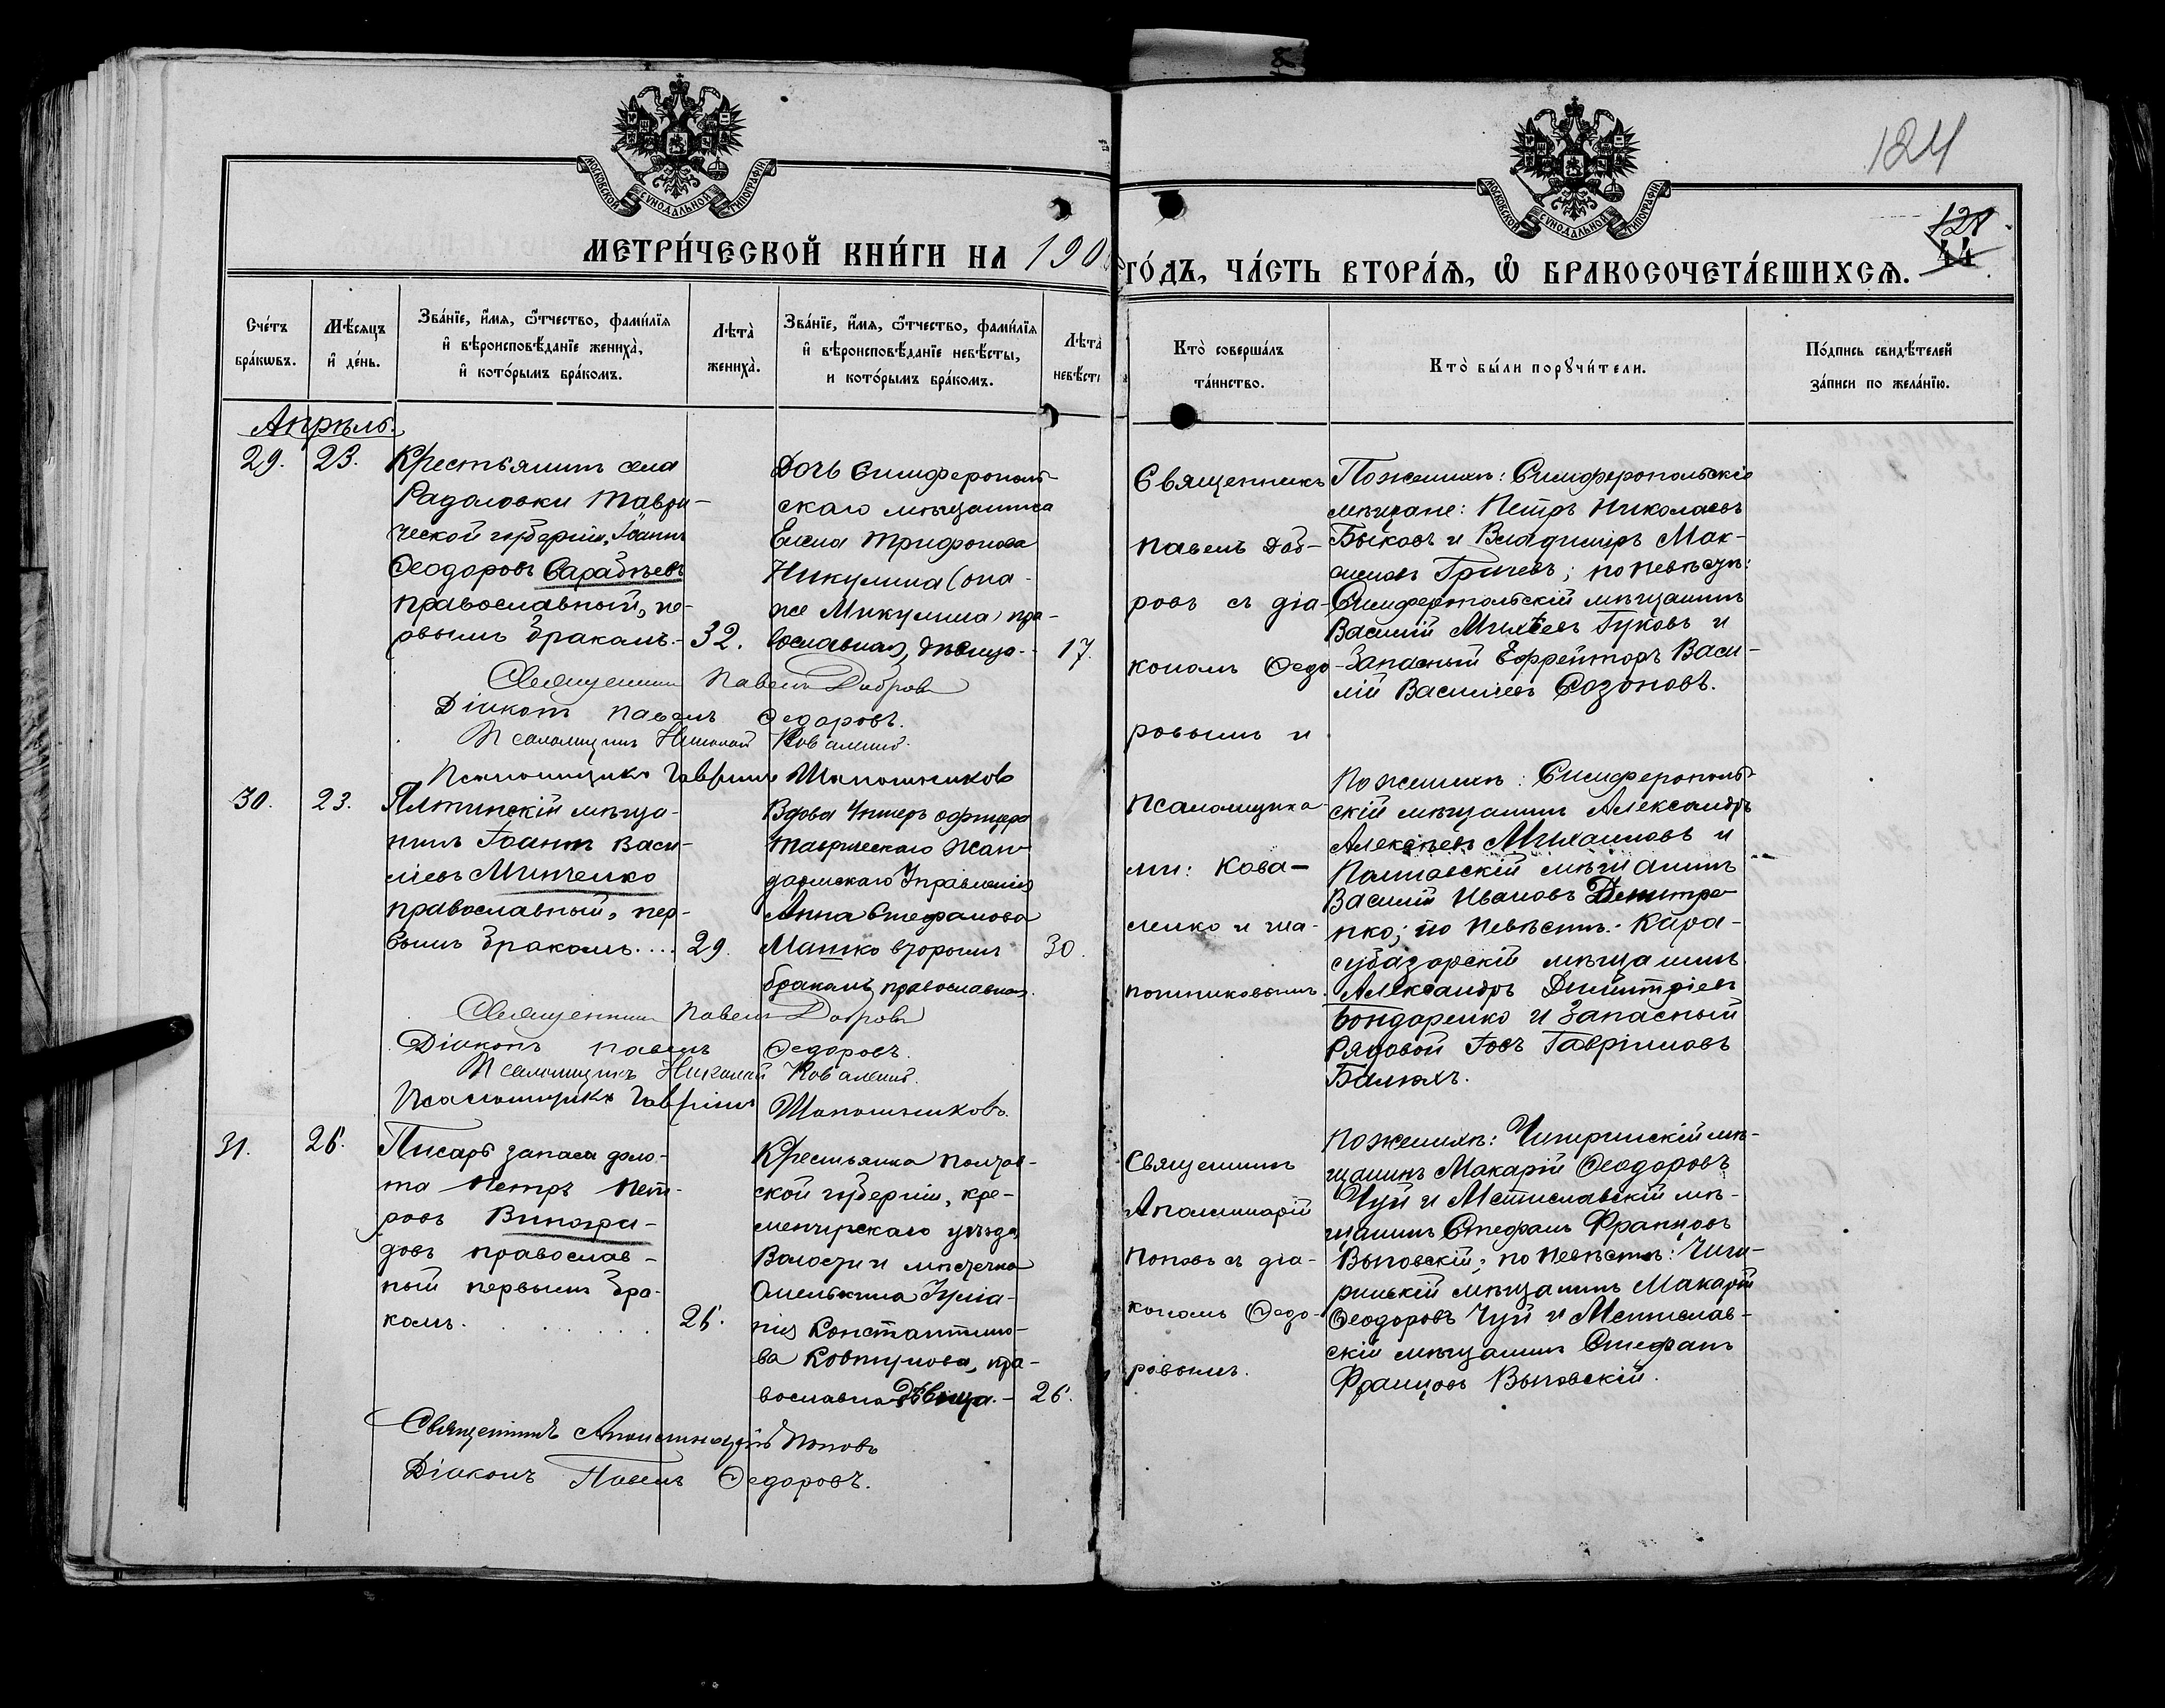 124
128
44
МОСКОВСКОЙ СѴНОДАЛЬНОЙ ТИПОГРАФІИ
МОСКОВСКОЙ СѴНОДАЛЬНОЙ ТИПОГРАФІИ
МЕТРИ́ЧЕСКОЙ КНИ́ГИ НА 190
ГО́ДЪ, ЧА́СТЬ ВТОРА́Я, Ѽ БРАКОСОЧЕТА́ВШИХСЯ.
Сче́тъ бра́кѡвъ.
Мѣ́сяцъ и҆ де́нь.
Зва́нїе, и҆́мя, ѻ҆́тчество, фами́лїя и҆ вѣроисповѣ́данїе жениха̀, и҆ кото́рымъ бра́комъ.
Лѣта̀ жениха̀.
Зва́нїе, и҆́мя, ѻ҆́тчество, фами́лїя и҆ вѣроисповѣ́данїе невѣ́сты, и кото́рымъ бра́комъ.
Лѣта̀ невѣ́сты
Кто̀ соверша́лъ та́инство.
Кто̀ бы́ли порꙋчи́тели.
По́дпись свидѣ́телей за́писи по жела́нїю.
Апрѣль.
29. 23.
Крестьянинъ села
Радоловки Таври-
ческой губерніи, Іоаннъ
Ѳеодоровъ Сарабѣевъ
православный, пе-
рвымъ бракомъ.- 32.
Дочь Симферополь-
скаго мѣщанина
Елена Трифонова
Никулина (она-
же Микулина) пра-
вославная, дѣвица.- 17.
Священникъ
Павелъ Доб-
ровъ съ діа-
кономъ Ѳедо-
ровымъ и
Псаломщика-
ми: Кова-
ленко и Ша-
пошниковымъ.
По женихѣ: Симферопольскіе
мѣщане: Петръ Николаевъ
Быковъ и Владиміръ Мак-
симовъ Грачевъ; по невѣстѣ:
Симферопольскій мѣщанинъ
Василій Михѣевъ Гуковъ и
Запасный Ефрейторъ Васи-
лій Васильевъ Созоновъ.
Священникъ Павелъ Добровъ
Діаконъ Павелъ Ѳедоровъ.
Псаломщикъ Николай Коваленко.
Псаломщикъ Гавріилъ Шапошниковъ
30. 23.
Ялтинскій мѣща-
нинъ Іоаннъ Васи-
ліевъ Минченко
православный, пер-
вымъ бракомъ.... 29.
Вдова Унтеръ офицера
Таврическаго Жан-
дармскаго Управленія
Анна Стефанова
Матко вторымъ 30.
бракомъ, православная.
По женихѣ: Симферополь-
скій мѣщанинъ Александръ
Алексѣевъ Михаиловъ и
Полтавскій мѣщанинъ
Василій Ивановъ Дмитре-
нко; по невѣстѣ: Кара-
субазарскій мѣщанинъ
Александръ Дмитріевъ
Бондаренко и Запасный
Рядовой Іовъ Гавріиловъ
Балюхъ.
Священникъ Павелъ Добровъ
Діаконъ Павелъ Ѳедоровъ.
Псаломщикъ Николай Коваленко.
Псаломщикъ Гавріилъ Шапошниковъ.
31. 26.
Писарь запаса фло-
та Петръ Пет-
ровъ Виногра-
довъ православ-
ный первымъ бра-
комъ. 26.
Крестьянка Полтав-
ской губерніи, Кре-
менчугскаго уѣзда,
Волости и мѣстечка
Омельника Іуліа-
нія Константино-
ва Ковтунова, пра-
вославна Дѣвица.- 26.
Священникъ
Аполлинарій
Поповъ съ діа-
кономъ Ѳедо-
ровымъ.
По женихѣ: Чигиринскій мѣ-
щанинъ Макарій Ѳеодоровъ
Чуй и Мстиславскій мѣ-
щанинъ Стефанъ Францовъ
Выповскій; по невѣстѣ: Чиги-
ринскій мѣщанинъ Макарій
Ѳеодоровъ Чуй и Мстислав-
скій мѣщанинъ Стефанъ
Францовъ Выповскій.
Священникъ Аполлинарій Поповъ
Діаконъ Павелъ Ѳедоровъ.